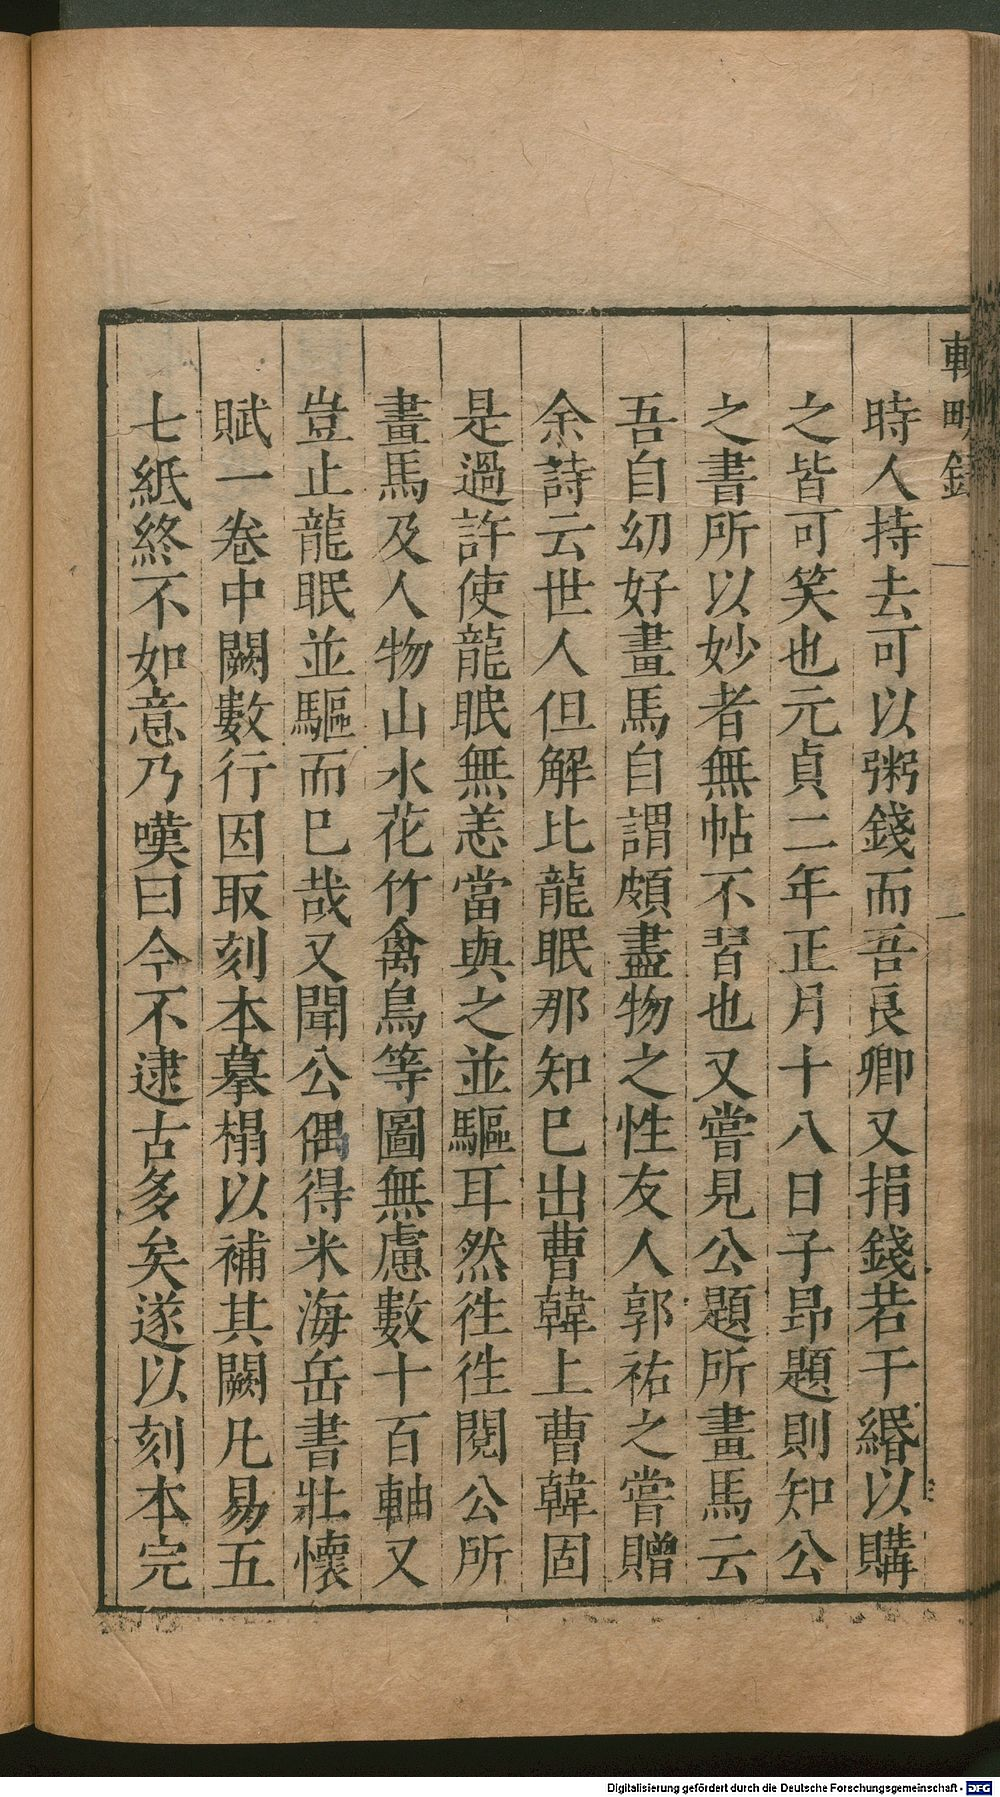 輟畊錄
時人持去可以粥錢而吾良卿又捐錢若干緡以購
之皆可笑也元貞二年正月十八日子昻題則知公
之書所以妙者無帖不習也又嘗見公題所畫馬云
吾自㓜好畫馬自謂頗盡物之性友人郭祐之嘗贈
余詩云世人但解比龍眠那知巳出曹韓上曹韓固
是過許使龍眠無恙當與之並驅耳然徃徃閱公所
畫馬及人物山水花竹禽鳥等圖無慮數十百軸又
豈止龍眠並驅而巳哉又聞公偶得米海岳書壯懷
賦一卷中闕數行因取刻本摹榻以補其闕凡易五
七紙終不如意乃嘆曰今不逮古多矣遂以刻本完
Digitalisierung gefördert durch die Deutsche Forschungsgemeinschaft - DFG